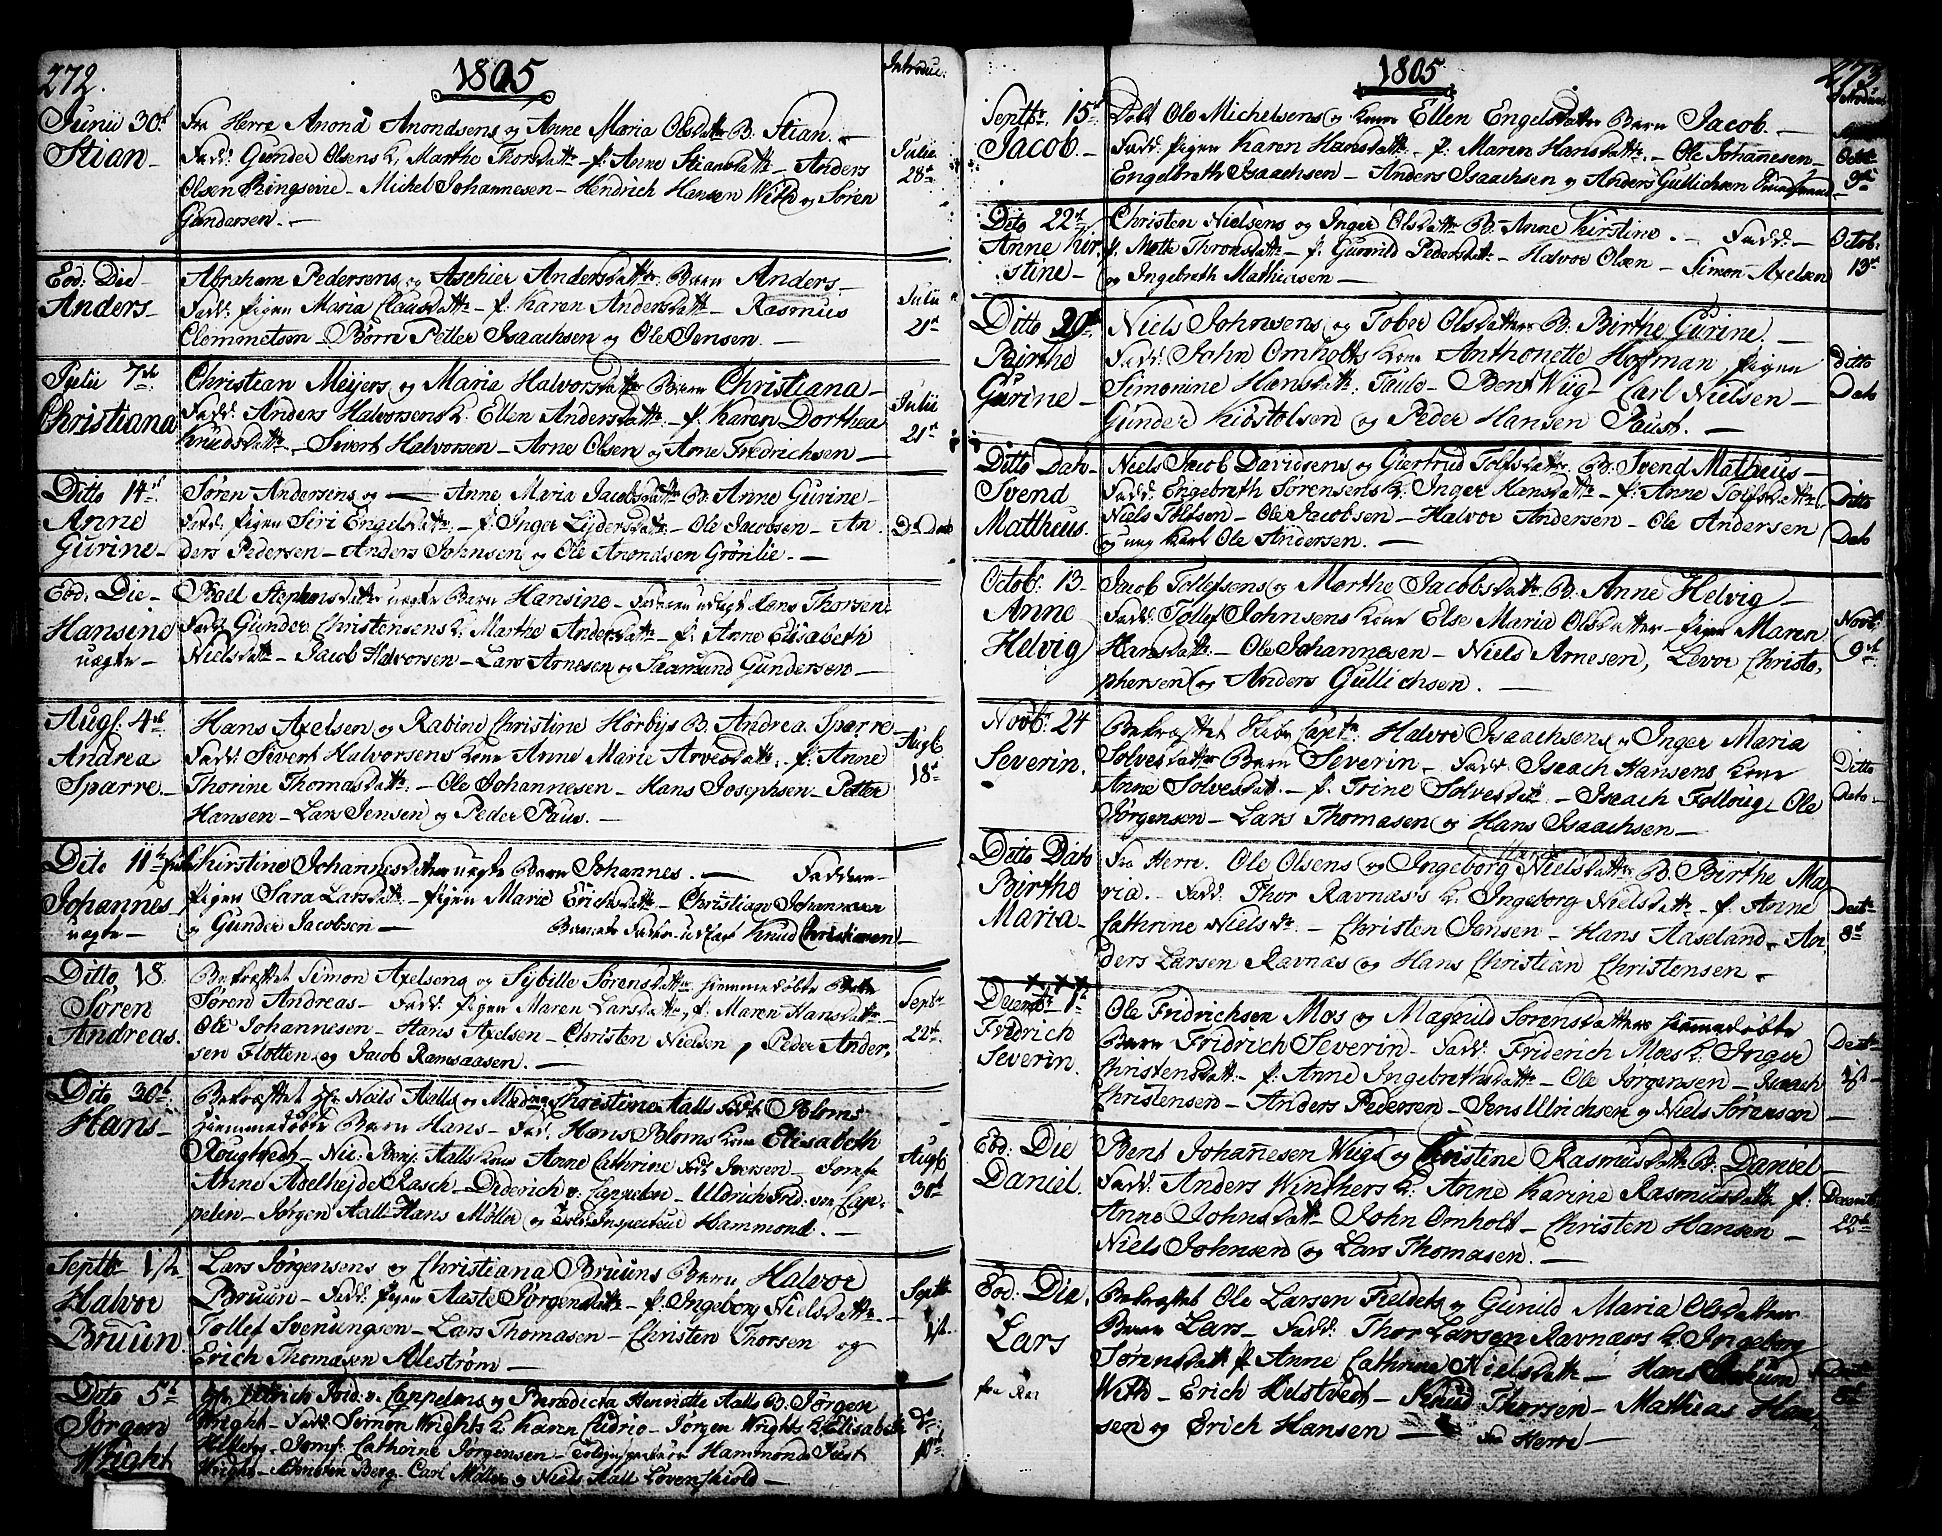 272.
1805
Introduc:
Junii 30te
Stian –
Fra Herre Anond Anondsens og Anne Maria Olsdatter B. Stian. –
Fadd: Gunder Olsens K. Marthe Thorsdattr – p: Anne Stiansdattr – Anders
Olsen Ringsevie – Michel Johannesen – Hendrich Hansen With og Søren
Gundersen. –
Julii
28de
Eod: Die
Anders –
Abraham Pedersens og Aschier Andersdatter Barn Anders –
Fadd: pigen Maria Clausdattr – p: Karen Andersdattr – Rasmus
Clemmetsen – Børre Petter Isaachsen og Ole Jensen. –
Julii
21de
Julii 7de
Christiana
Christian Meijers og Maria Halvorsdatter Barn Christiana –
Fadd: Anders Halvorsens K. Ellen Andersdattr – p: Karen Dorthea
Knudsdattr – Sivert Halvorsen – Arne Olsen og Arne Fredrichsen –
Julii
21de
Ditto 14de
Anne
Gurine –
Søren Andersens og — Anne Maria Jacobsdattr B: Anne Gurine –
Fadd: pigen Siri Engelsdattr – p: Inger Lydersdattr – Ole Jacobsen – An,
ders Pedersen – Anders Johnsen og Ole Anondsen Grønlie. –
Do Dato
Eod: Die –
Hansine
uægte –
Rael Stephensdatters uægte Barn Hansine – Faderen udlagt Hans Thorsen
Fadd: Gunder Christensens K. Marthe Andersdattr – p: Anne Elisabeth
Nielsdattr – Jacob Halvorsen – Lars Arnesen og Saamund Gundersen –
Augs. 4de
Andrea
Sparre. –
Hans Axelsen og Rabine Christine Hørbyes B. Andrea Sparre
Fadd: Sivert Halvorsens Kone Anne Marie Arvesdattr. p: Anne
Thorine Thomasdattr. – Ole Johannesen – Hans Josephsen – Petter
Hansen – Lars Jensen og Peder Paus. –
Augs
18de
Dito 11te
Johannes
uægte –
Kirstine Johannesdatters uægte Barn Johannes. – Faddere –
Pigen Sara Larsdattr – pigen Marie Erichsdattr – Christian Johannesen
og Gunder Jacobsen – Barnets Fader udlagt Knud Christensen –
Ditto 18
Søren
Andreas.
Bekræftet Simon Axelsens og Sybille Sørensdatters hiemmedøbte Barn
Søren Andreas – Fadd: pigen Maren Larsdattr, p: Maren Hansdattr –
Ole Johannesen – Hans Axelsen – Christen Nielsen, Peder Ander,
sen Flotten og Jacob Ramsaasen. –
Septbr
22de
Dito 30te
Hans –
Bekræftet Hr Niels Aalls og Mad. Christine Aalls født Bloms
hiemmedøbte Barn Hans – Fad: Hans Bloms Kone Elisabeth
Rougtvedt – Nic: Benj: Aalls Kone Anne Cathrine født Iversen – Jomfr
Anne Adelhejde Rasch – Diderich v. Cappelen – Uldrich Frid. von Cap,
pelen – Jørgen Aall – Hans Møller og Told Inspecteur Hammond. –
Augs
30te
Septbr 1ste
Halvor
Bruun
Lars Jørgensens og Christiana Bruuns Barn Halvor
Bruun – Fadd: pigen Aaste Jørgensdattr – p: Ingeborg Nielsdattr –
Tollef Svenungsen – Lars Thomasen – Christen Thorsen og
Erich Thomasen Alestrøm –
Septbr
1ste
Dito 5te
Jørgen
Wright
Hr Uldrich Frid: v. Cappelens og Benedicta Henriette Aalls B. Jørgen
Wright – Fadd: Simon Wrights K. Karen Cudrio – Jørgen Wrights K. Elisabeth
– Jomfr Cathrine Jørgensen – Hammond Just
Wright – Christen Berg – Carl Møller og Niels Aall Løvenskiold –
Do
273
1805
Septbr. 15de
Jacob. –
Døbt Ole Michelsens og Kone Ellen Engelsdatters Barn Jacob –
Fadd: pigen Karen Hansdattr – p: Maren Hansdattr – Ole Johannesen –
Engelbrath Isaachsen – Anders Isaachsen og Anders Gullichsen
Octbr
9de
Dito 22de
Anne Kir,
stine –
Christen Nielsens og Inger Olsdatter B: Anne Kirstine. – Fadd: –
p. Mette Thronsdattr – p: Gunnild Pedersdattr – Halvor Olsen – Simon Axelsen
og Ingebrath Mathiesen –
Octob:
13de
Ditto 29de
Birthe
Gurine –
Niels Johnsens og Tober Olsdatters B: Birthe Gurine. –
Fadd: John Omholts Kone Anthonette Hofman pigen
Simonine Hansdattr: Fauls – Bent Wiig – Carl Nielsen –
Gunder Kidstolsen og Peder Hansen Faust. –
Ditto
Dato
Ditto Dato –
Svend
Mattheus.
Niels Jacob Davidsens og Giertrud Tolfsdatter B. Svend Matheus –
Fadd: Engebrath Sørensens K: Inger Hansdattr – p: Anne Tolfsdattr
Niels Tolfsen – Ole Jacobsen – Halvor Andersen – Ole Andersen
og ung Karl Ole Andersen. –
Ditto
Dato
Octob: 13
Anne
Helvig
Jacob Tollefsens og Marthe Jacobsdattr B. Anne Helvig –
Fadd: Tollef Johnsens Kone Else Maria Olsdatter – pigen Maren
Hansdattr – Ole Johannesen – Niels Arnesen, Levor Christo,
phersen og Anders Gullichsen. –
Novb:
9de
Novb: 24
Severin.
Bekræftet Skibs Captn Halvor Isaachsens og Inger Maria
Solvesdatters Barn Severin – Fadd: Iseach Hansens Kone
Anne Solvesdat. – p. Trine Solvesdatr – Iseach Følloug – Ole
Jørgensen – Lars Thomasen og Hans Isaachsen –
Ditto
Dato –
Ditto Dato
Birthe
Maria –
Fra Herre. Ole Olsens og Ingeborg Nielsdatters B. Birthe Ma,
ria. – Fadd: Thor Ravnæs's K. Ingeborg Nielsdattr – p: Anne
Cathrine Nielsdr – Christen Jensen – Hans Aaseland – An,
ders Larsen Ravnæs og Hans Christian Christensen –
8de
Decembr 1ste
Fridrich
Severin.
Ole Fridrichsen Moes og Magnild Sørensdatters hiemmedøbte
Barn Fridrich Severin – Fadd: Friderich Moes K. Inger
Christensdattr – p: Anne Ingebrethsdattr – Ole Jørgensen – Isaach
Christensen – Anders Pedersen – Jens Ulrichsen og Niels Sørensen –
1ste
Eod: Die
Daniel.
Bent Johannesen Wiigs og Christine Rasmusdattr B: Daniel –
Fadd: Anders Winthers K. Anne Karine Rasmusdattr p:
Anne Johnsdattr – John Omholt – Christen Hansen –
Niels Johnsen og Lars Thomasen. –
Decembr
22de
Eod: Die.
Lars
Bekræftet Ole Larsen Fieldets og Gunild Maria Olsdatters
Barn Lars – Fadd: Thor Larsen Ravnæs K. Ingeborg
Sørensdattr p Anne Cathrine Nielsdattr – Hans
With – Erich Helstvedt – Knud Thorsen – Mathias Han,
sen og Erich Hansen –
Fra Herre –
8de